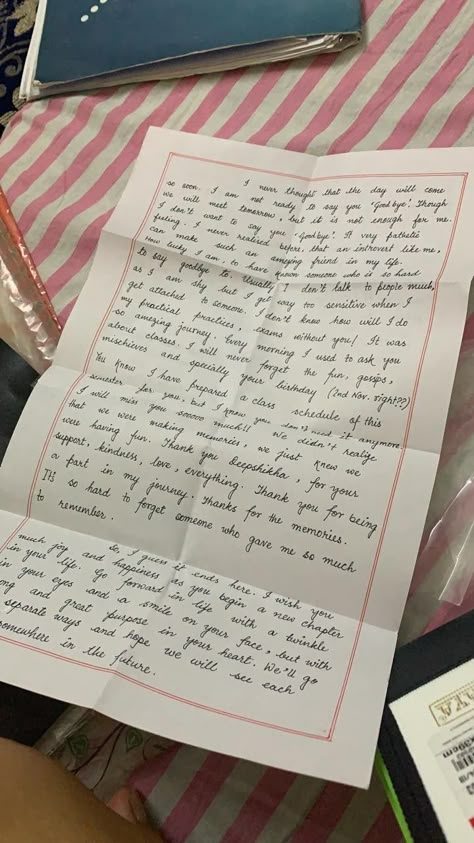 I never thought that the day will come
so soon. I am not ready to say you 'Good bye'. Though
we will meet tomorrow, but it is not enough for me.
I don't want to say you 'Goodbye'. It very pathetic
feeling. I never realized before, that an introvert like me,
can make such an amazing friend in my life.
How lucky I am to have known someone who is so hard
to say goodbye to. Usually I don't talk to people much,
as I am shy but I get way too sensitive when I
get attached to someone. I don't know how will I do
my practical practices, exams without you! It was
so amazing journey. Every morning I used to ask you
about classes. I will never forget the fun, gossips,
mischieves and specially your birthday (2nd Nov. right??)
You know I have prepared a class schedule of this
semester for you, but I know you don't need it anymore.
I will miss you soooo much!! We didn't realize
that we were making memories, we just knew we
were having fun. Thank you Deepshikha, for your
support, kindness, love, everything. Thank you for being
a part in my journey. Thanks for the memories.
It's so hard to forget someone who gave me so much
to remember.
So, I guess it ends here. I wish you
much joy and happiness as you begin a new chapter
in your life. Go forward in life with a twinkle
in your eyes and a smile on your face, but with
and great purpose in your heart. We'll go
separate ways and hope we will see each
somewhere in the future.